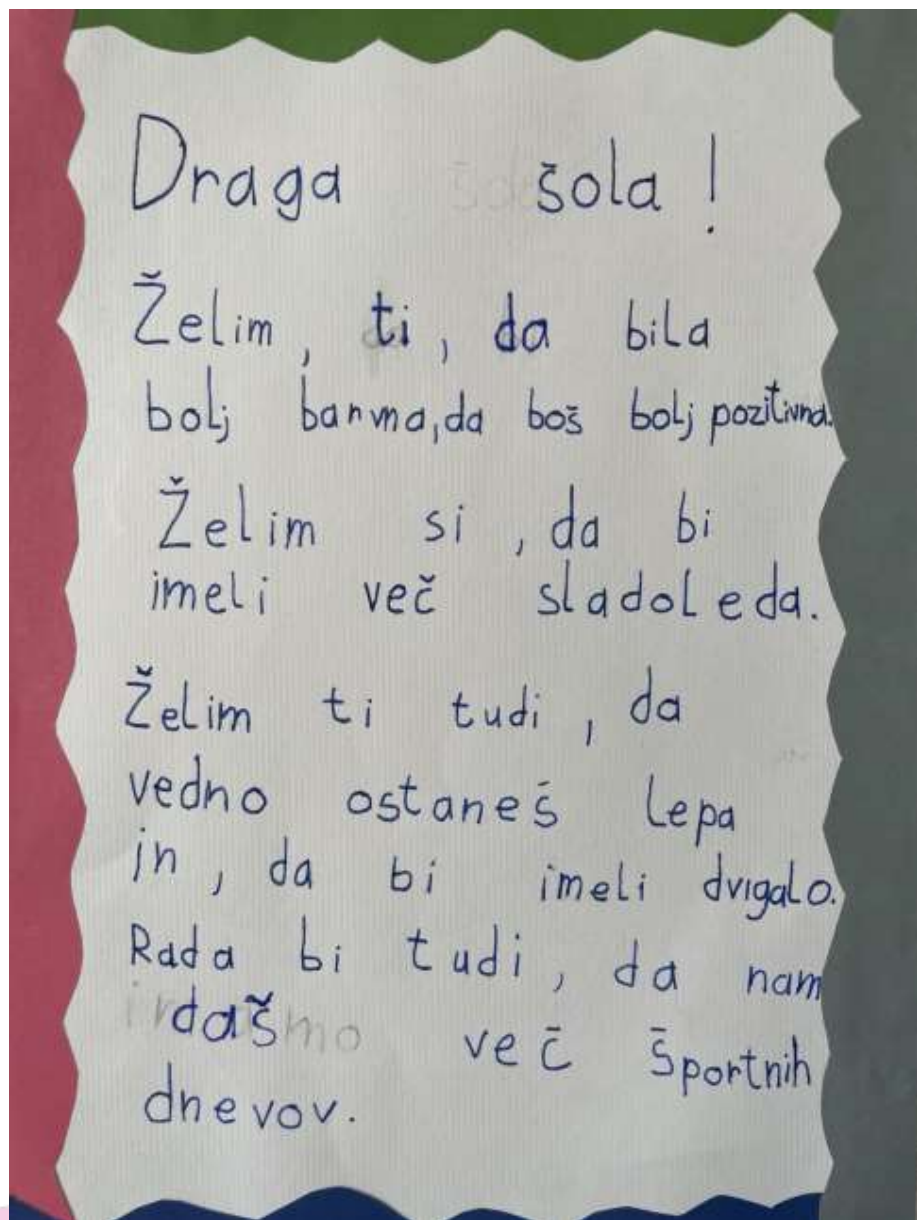 Draga šola!
Želim, ti, da bila
bolj barvna, da boš bolj pozitivna.
Želim si, da bi
imeli več sladoleda.
Želim ti tudi, da
vedno ostaneš lepa
in, da bi imeli dvigalo.
Rada bi tudi, da nam
daš več športnih
dnevov.